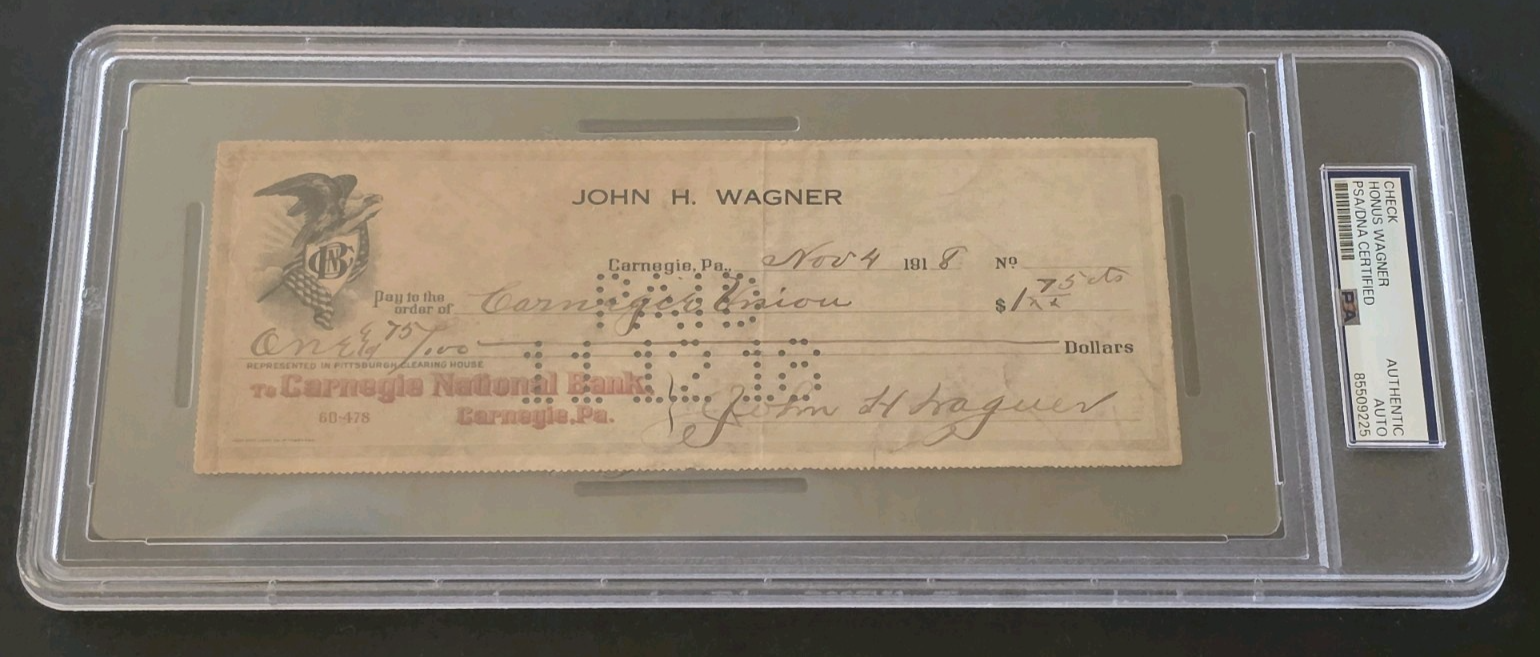 JOHN H. WAGNER
Carnegie, Pa., Nov 4 1918 No
Pay to the order of Carnegie Union $1 75 cts
xx
One & 75/100 Dollars
REPRESENTED IN PITTSBURGH CLEARING HOUSE
To Carnegie National Bank,
Carnegie, Pa.
60-478
John H Wagner
PAID
11 12 18
CNB
CHECK
HONUS WAGNER
PSA/DNA CERTIFIED
PSA
AUTHENTIC
AUTO
85509225